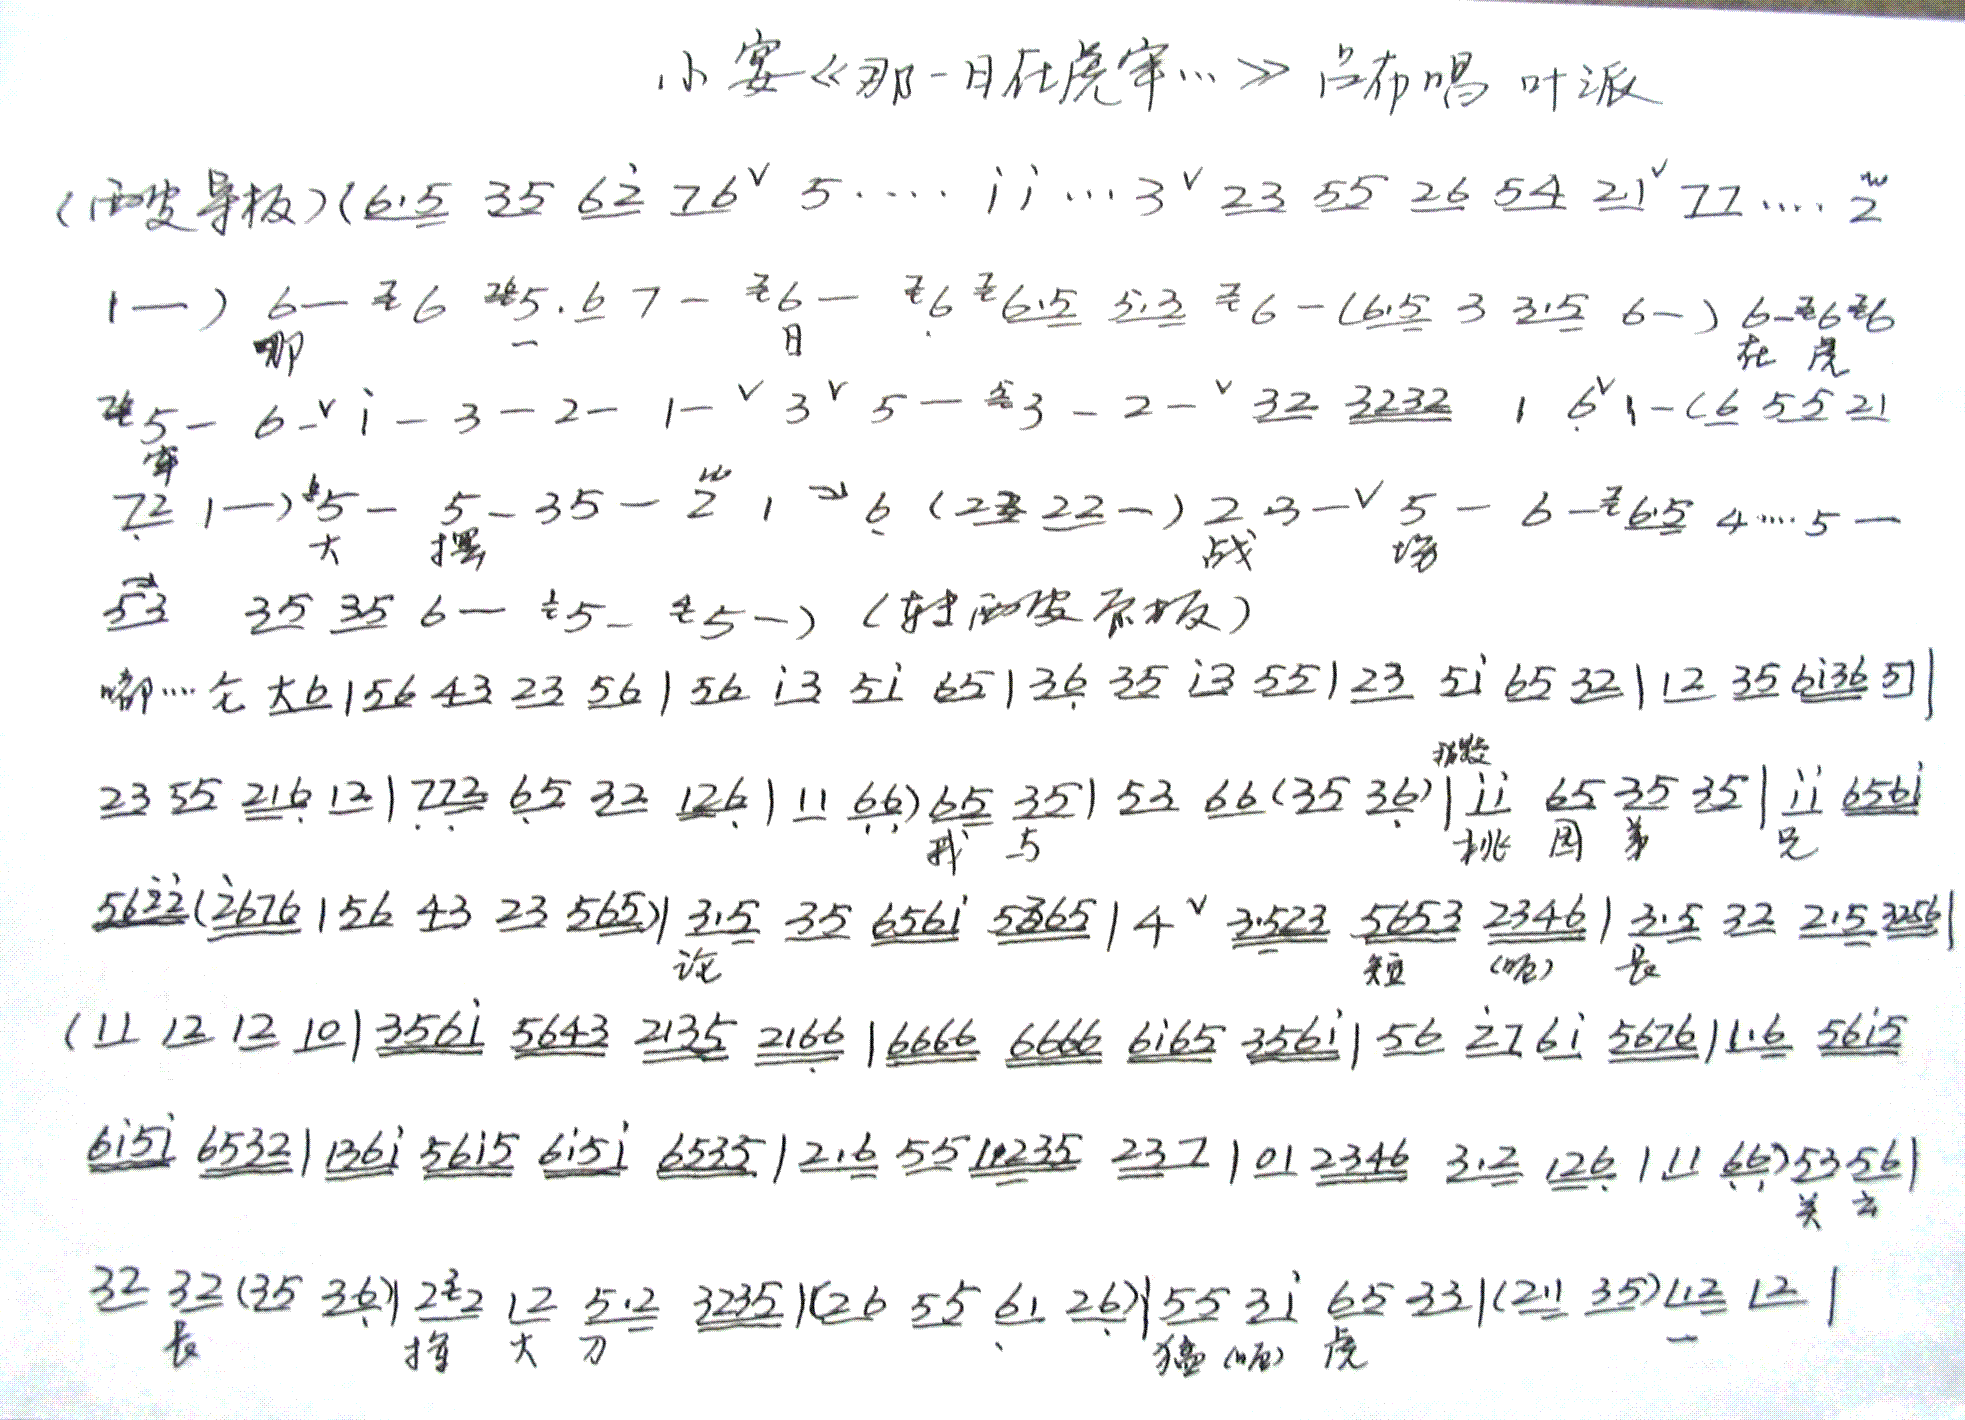 小宴《那一日在虎牢…》吕布唱 叶派
(西皮导板)(6·5 35 62̇ 76ᵛ 5···· i̇ i̇ ··· 3ᵛ 23 55 26 54 21ᵛ 77···· 2
1—) 6— 6 5·6 7— 6— 6 6·5 5·3 6—(6·5 3 3·5 6—) 6—6 6
那 一 日 在 虎
5— 6—ᵛ i̇—3—2—1—ᵛ 3ᵛ 5—3—2—ᵛ 32 3232 1 6̣ᵛ 1—(6 55 21
牢
7̣2 1—) 5— 5—35—2 1 6̣ (2 22—) 2·3—ᵛ 5—6—6·5 4····5—
大 摆 战 场
53 35 35 6— 5— 5—) (转西皮原板)
嘟···· 仓 大6|56 43 23 56|56 i̇3 5i̇ 65|36̣ 35 i̇3 55|23 5i̇ 65 32|12 35 6i̇36 5|
23 55 216̣ 12|7̣7̣2 6̣5 32 126̣|11 6̣6̣) 65 35|53 66(35 36̣)|i̇i̇ 65 35 35|i̇i̇ 656i̇
我 与 桃 园 弟 兄
562̇2̇(2̇676|56 43 23 565)|3·5 35 656i̇ 5365|4ᵛ 3·523 5653 2346|3·5 32 2·5 3256|
论 短 (呃) 长
(11 12 12 10|356i̇ 5643 2135 2166̣|6666 6666 6i̇65 356i̇|56 2̇7 6i̇ 5676|1·6 56i̇5
6i̇5i̇ 6532|136i̇ 56i̇5 6i̇5i̇ 6535|2·6 55 1·235 237|01 2346 3·2 126̣|11 6̣6̣) 53 56|
关 云
32 32(35 36̣)|22 12 5·2 3235|(26 55 6̣1 26̣)|55 3i̇ 65 33|(211 35) 1·2 12|
长 挥 大 刀 猛 (呃) 虎 一